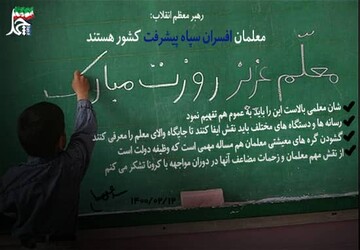 رهبر معظم انقلاب:
معلمان افسران سپاه پیشرفت کشور هستند
معلّم عزیز روزت مبارک
شان معلمی بالاست این را باید به عموم هم تفهیم نمود
رسانه ها و دستگاه های مختلف باید نقش ایفا کنند تا جایگاه والای معلم را معرفی کنند
گشودن گره های معیشتی معلمان هم مساله مهمی است که وظیفه دولت است
از نقش مهم معلمان و زحمات مضاعف آنها در دوران مواجهه با کرونا تشکر می کنم
۱۴۰۰/۰۲/۱۲